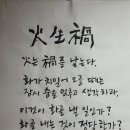 火生禍
火는 禍를 낳는다.
화가 치밀어 오를 때는
잠시 숨을 멈추고 생각하라.
이것이 화를 낼 일인가?
화를 내는 것이 정당한가?